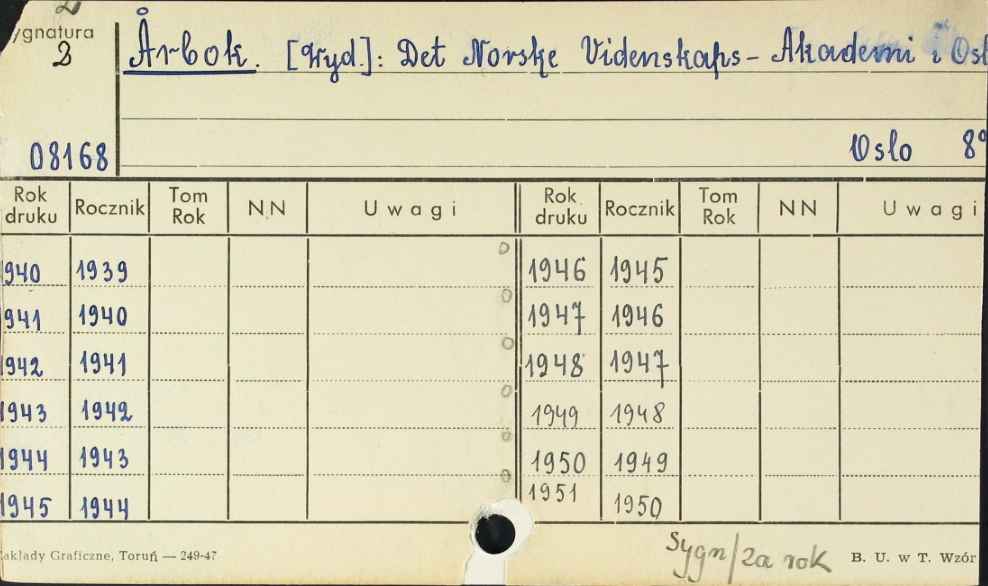 ygnatura
2
Årbok. [Wyd.]: Det Norske Videnskaps-Akademi i Osl
08168
Oslo 8°
Rok druku Rocznik Tom Rok NN Uwagi Rok druku Rocznik Tom Rok NN Uwagi
940 1939 1946 1945
941 1940 1947 1946
942 1941 1948 1947
1943 1942 1949 1948
1944 1943 1950 1949
1945 1944 1951 1950
akłady Graficzne, Toruń — 249-47
Sygn/za rok
B. U. w T. Wzór